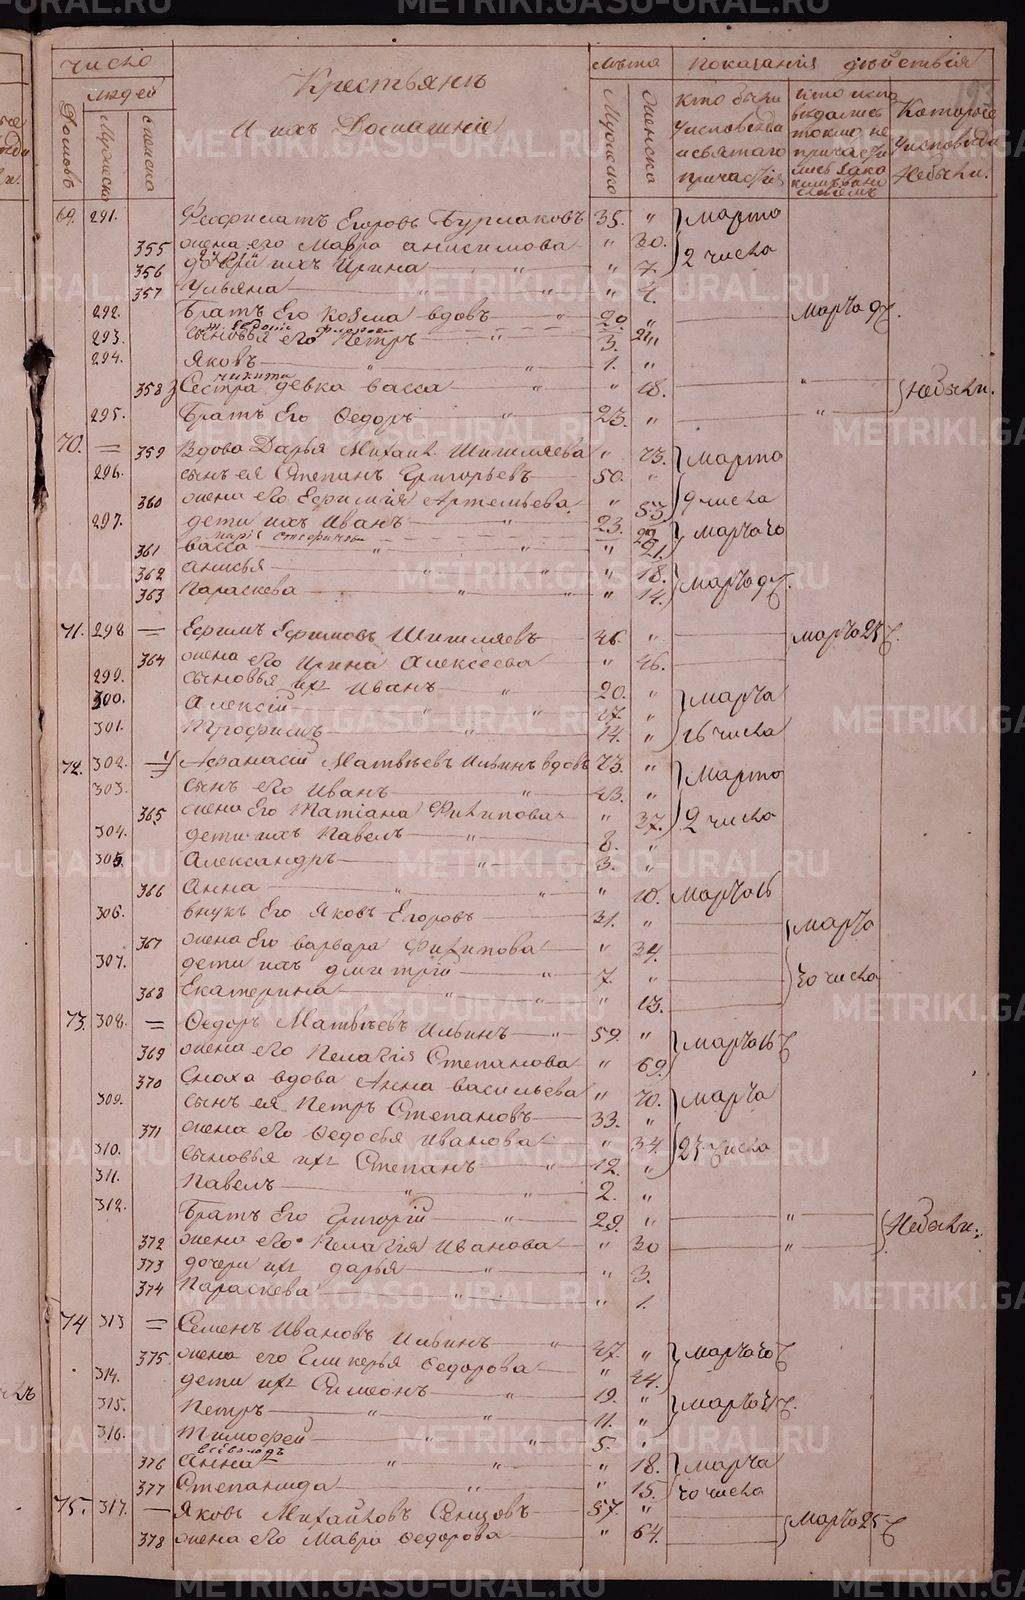 число
людей
Крестьянъ
И ихъ Домашніе
лѣта
показанія дѣйствія
Домовъ
Мужеска
женска
Мужеска
женска
кто были
у исповѣди
и святаго
причастія
Которые
у исповѣди
Небыли.
69. 291. Феофилактъ Егоровъ Бурмаковъ 35. " Марта
355 жена его Мавра Анисимова " 30. 2 числа
356 дочери ихъ Ирина " " 7.
357 Ульяна " " " 4.
292. Братъ Его Козма вдовъ " 29. " Марта 9 ч.
293. сыновья его Петръ " 3. "
294. Яковъ " " 1. "
358 Сестра девка васса " " 18. " Небыли.
295. Братъ Его Федоръ " 23. " "
70. 359 Вдова Дарья Михаил. Шишмяева " 73. Марта
296. сынъ ея Степанъ Григорьевъ 50. "
360 жена его Евфимія Артемьева " 53 9 числа
297. дети ихъ Иванъ " 23. Марта 10
361 васса " " " 21.
362 анисья " " " 18. Марта 9 ч.
363 Параскева " " " 14.
71. 298 Ефимъ Ефимовъ Шишмяевъ 46. " марта 25 ч.
364 жена его Ирина Алексеева " 46.
299. сыновья их Иванъ " 20. " Марта
300. Алексій " " 17. "
301. Трофимъ " 14. " 16 числа
72. 302. Афанасій Матвѣевъ Ильинъ вдовъ 73. " Марта
303. сынъ его Иванъ " 43. "
365 жена Его Татіана Филипова " 37. 2 числа
304. дети ихъ Павелъ " 8. "
305. Александръ " 3. "
366 Анна " " " 10. Марта 16
306. внукъ Его Яковъ Егоровъ 31. " Марта
367 жена Его варвара Филипова " 34.
307. дети ихъ дмитрій " 7. " 30 числа
368 Екатерина " " " 13.
73. 308. Федоръ Матвѣевъ Ильинъ " 59. " Марта 16 ч
369 жена его Пелагія Степанова " 69.
370 Сноха вдова Анна васильева " 70. Марта
309. сынъ ея Петръ Степановъ 33. "
371 жена его Федосья Иванова " 34. 25 числа
310. Сыновья их Степанъ " 12. "
311. Павелъ " " 2. "
312. Братъ Его Григорій " 29. " " Небыли.
372 жена его Пелагія Иванова " 30 "
373 дочери их дарья " " 3.
374 Параскева " " 1.
74 313 Семенъ Ивановъ Ильинъ " 47. " Марта 10 ч
375. жена его Гликерья Федорова " 44.
314. дети их Симеонъ " 19. " Марта ч.
315. Петръ " " 11. "
316. Тимофей " " 5. "
376 Анна " " " 18. Марта
377 Степанида " " 15. 30 числа
75. 317. Яковъ Михайловъ Сенцовъ 57. " Марта 25 ч
378 жена его Мавра Федорова " 64.
METRIKI.GASO-URAL.RU